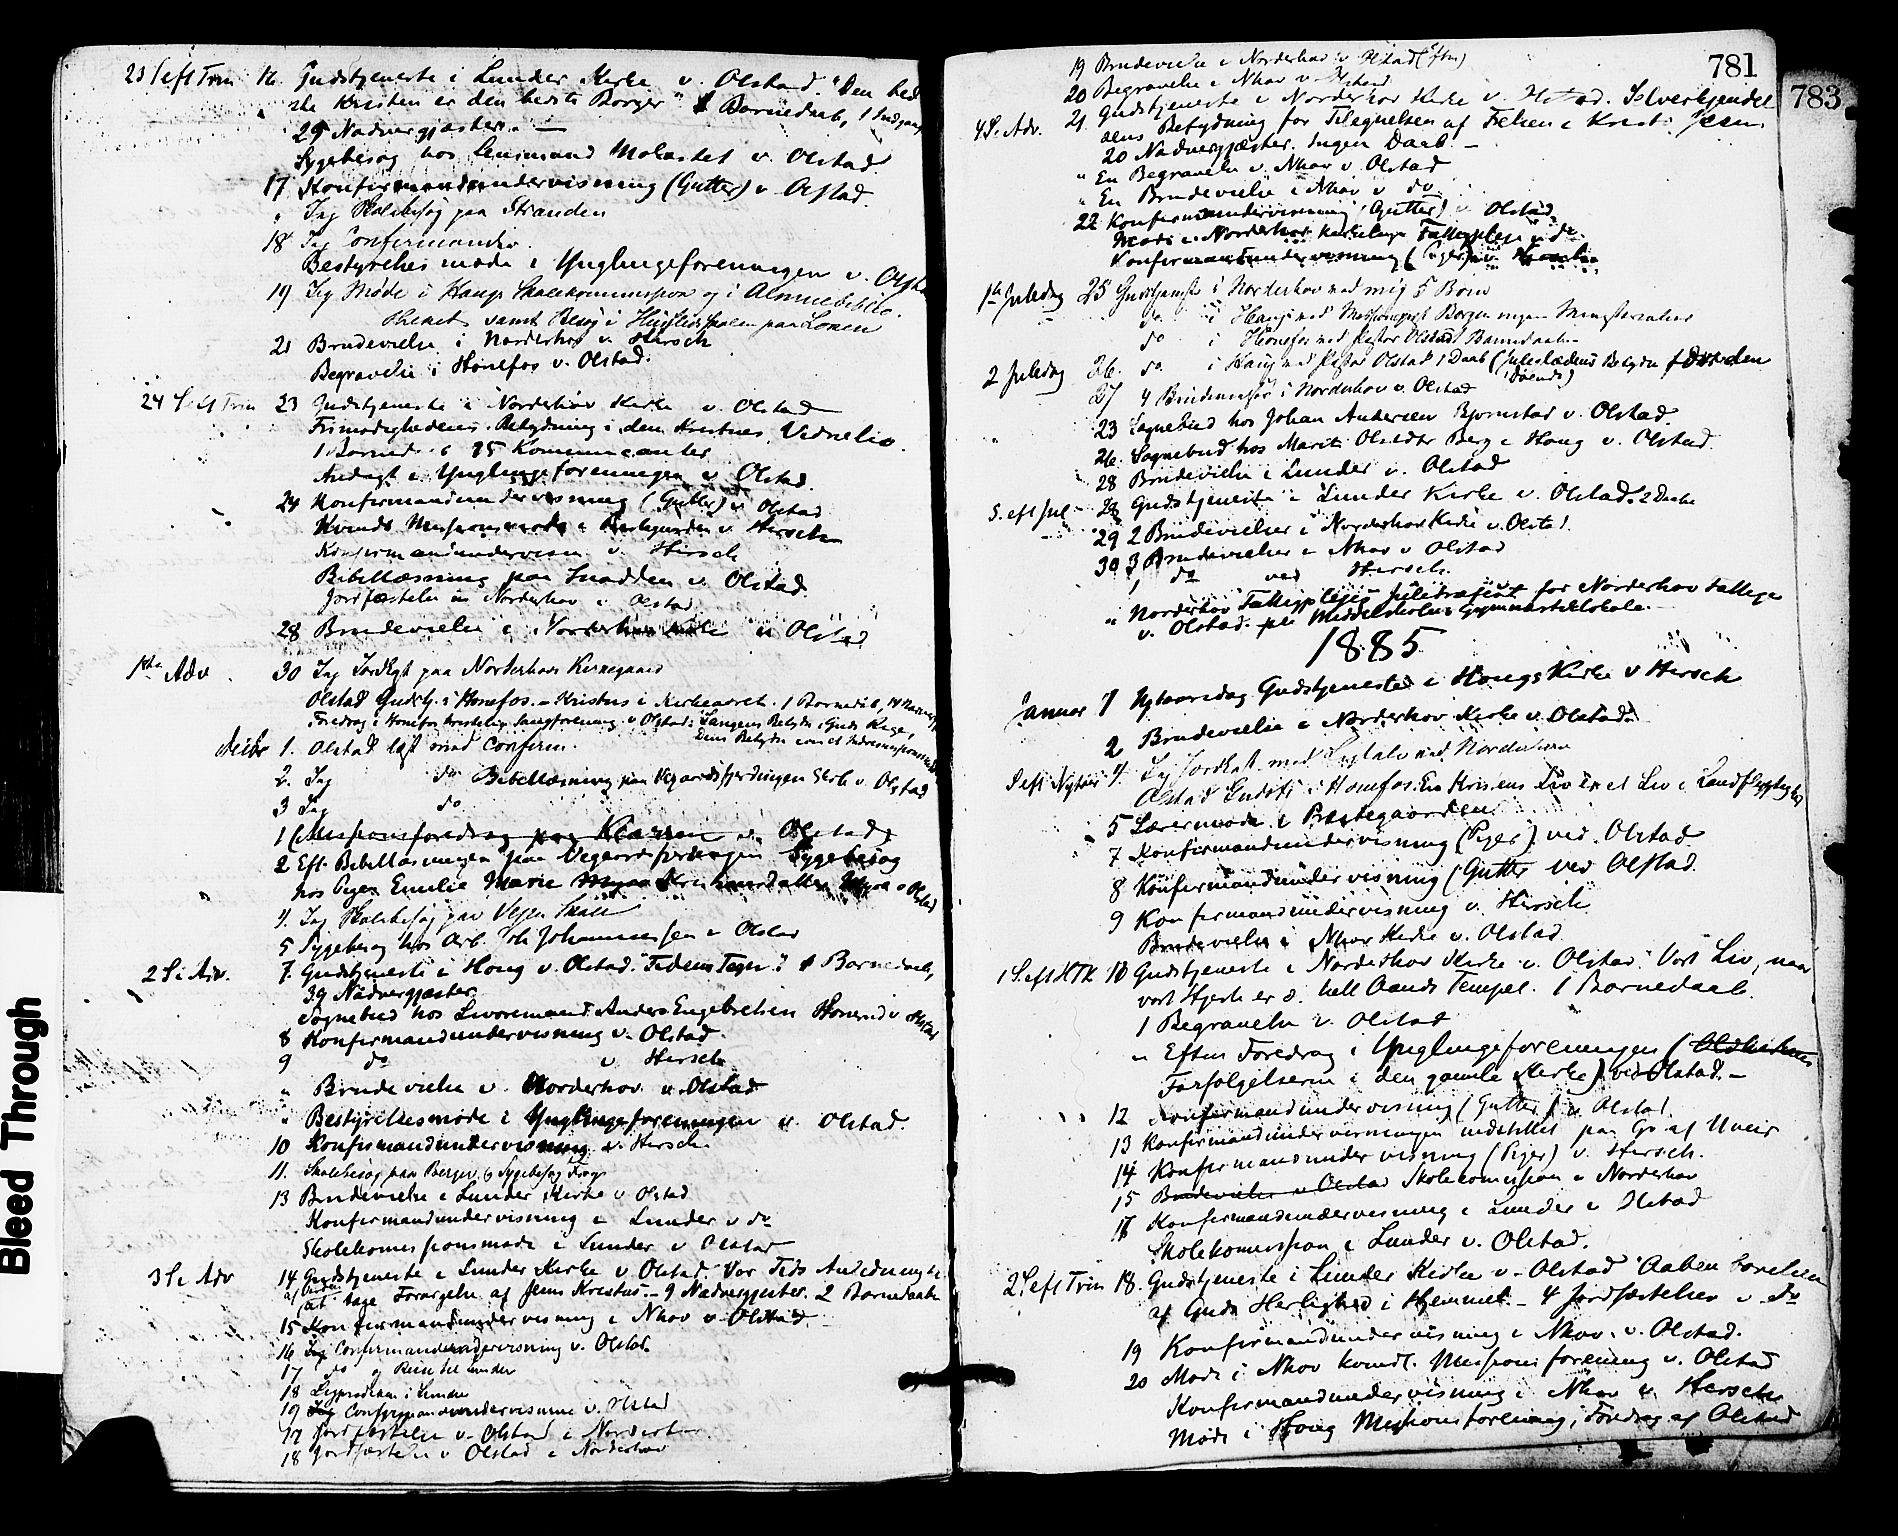 23 S eft Trin 16. Gudstjeneste i Lunder Kirke v. Olstad. "Den bed
ste Kristen er den bedste Borger" 1 Barnedaab, 1 Indgang
29 Nadvergjæster. —
Sygebesøg hos Lensmand v. Olstad
17 Konfirmandundervisning (Gutter) v Olstad.
" Jeg Skolebesøg paa Stranden
18 Jeg Confirmander.
Bestyrelsesmøde i Ynglingeforeningen v. Olstad
19 Jeg Møde i Haugs Skolekommission og i Almuebiblio.
theket samt Besøg i paa Lonen
21 Brudevielse i Norderhov v. Hersch
Begravelse i Hönefos v. Olstad.
24 S eft Trin 23 Gudstjeneste i Norderhov Kirke v. Olstad
Frimodighedens Betydning i den Kristnes Vidnesliv.
1 Barned. 6 25 Kommunicanter
Andagt i Ynglingeforeningen v Olstad.
24 Konfirmandundervisning (Gutter) v Olstad
Kvindl. Missionsmøde i Prestegaarden v. Hersch
Konfirmandundervisn v. Hersch
Bibellæsning paa Snadden v. Olstad
Jordfæstelse i Norderhov v Olstad
28 Brudevielse i Norderhov Kirke v Olstad
1ste Adv. 30 Jeg Jordkast paa Norderhovs Kirkegaard
Olstad Gudstj. i Hönefos. - Kristus i Kirkeaaret. 1 Barnedåb, 14 Nadverg.
Foredrag i Hönefos kristelig Sangforening v Olstad: Sangens Betydn. i Guds Rige,
Dens Betydn
Decbr 1. Olstad læst med Confirm.
2. Jeg do Bibellæsning paa Vegardsfjerdingen Skole v. Olstad
3 Jeg do
1 (Missionsforedrag paa v. Olstad)
2 Eft. Bibellæsningen paa Vegardsfjerdingen Sygebesøg
hos Pigen Emilie Marie Kristiansdatter v Olstad
4. Jeg Skolebesøg paa Vejen Skole
5 Sygebesøg hos Arb. Joh Johannessen v Olstad
2 S i Adv. 7. Gudstjeneste i Houg v. Olstad. "Tidens Tegn". 1 Barnedaab,
39 Nadvergjæster
Sognebud hos Anders Engebretsen v Olstad
8 Konfirmandundervisning v. Olstad.
9 do v Hersch
" Brudevielse v. Norderhov v. Olstad
" Bestyrelsesmøde i Ynglingeforeningen v. Olstad.
10 Konfirmandundervisning v. Hersch
11. Skolebesøg paa Berger, og Sygebesøg Frog
13 Brudevielse i Lunder Kirke v Olstad
Konfirmandundervisning i Lunder v do
Skolekomissionsmøde i Lunder v Olstad
3 S i Adv 14 Gudstjeneste i Lunder Kirke v. Olstad. Vor Tids
af at tage Forargelse af Jesus Kristus. - 9 Nadvergjæster. 2 Barnedaab
15 Konfirmandundervisning i Nhov v. Olstad
16 Jeg Confirmandundervisning v. Olstad.
17 do og Reise til Lunder
18 i Lunder
19 Jeg Confirmandundervisning v. Olstad
17 Jordfæstelse v. Olstad i Norderhov
18 Jordfæstelse v Olstad i Norderhov
781
783
19 Brudevielse i Norderhov v. Olstad (Eftm)
20 Begravelse i Nhov v. Olstad
4 S i Adv. 21. Gudstjeneste i Norderhov Kirke v. Olstad. Selverkjendel
sens Betydning for Tilegnelsen af Frelsen i Krist. Jesus
20 Nadvergjæster. Ingen Daab. -
" En Begravelse i Nhov v. Olstad
" En Brudevielse i Nhov v do
22 Konfirmandundervisning (Gutter) v Olstad
Møde i Norderhov kirkelige Fattigpleje v do
Konfirmandundervisning (Piger) v. Hersch
1ste Juledag 25 Gudstjeneste i Norderhov ved mig 5 Børn
do i Haug ved Missionsprest Borgen ingen Ministerialier
do i Hönefos ved Pastor Olstad 1 Barnedaab.
2 Juledag 26. do i Haug ved Pastor Olstad 1 Daab (Juleglædens Betydn f Verden
27 4 Brudevielser i Norderhov v. Olstad
" 23 Sognebud hos Johan Andersen Bjørnstad v. Olstad.
26. Sognebud hos Marit Olsdtr Berg i Houg v. Olstad.
28 Brudevielse i Lunder v. Olstad
S. eft Jul - 28 Gudstjeneste i Lunder Kirke v. Olstad. 2 Daab
29 2 Brudevielser i Norderhov Kirke v. Olstad.
30 3 Brudevielser i Nhov v Olstad
1 do ved Hersch.
" Norderhov Fattigplejes Juletræfest for Norderhov Fattige
v. Olstad. paa Middelskolens Gymnastiklokale.
1885
Januar 1 Nytaarsdag Gudstjeneste i Hougs Kirke v Hersch
2 Brudevielse i Norderhov Kirke v. Olstad.
S eft Nytaar 4. Jeg Jordkast med Ligtale ved Norderhov
Olstad Gudstj. i Hönefos. En Kristens Liv er et Liv i Landflygtighed
5 Lærermøde i Prestegaarden
7 Konfirmandundervisning (Piger) ved Olstad
8 Konfirmandundervisning (Gutter ved Olstad.
9 Konfirmandundervisning v. Hersch
Brudevielse i Nhov Kirke v. Olstad
1 S. eft H3K 10 Gudstjeneste i Norderhov Kirke v. Olstad. "Vort Liv, naar
vort Hjerte er d. hell Aands Tempel. 1 Barnedaab.
1 Begravelse v. Olstad
" Eftm Foredrag i Ynglingeforeningen (Oldkirkens
Forfølgelserne i den gamle Kirke) ved Olstad. -
12 Konfirmandundervisning (Gutter) v. Olstad.
13 Konfirmandundervisningen indstillet paa Gr af Uveir
14 Konfirmandundervisning (Piger) v. Hersch.
15 Brudevielse v Olstad Skolekomission i Norderhov
16 Konfirmandundervisning i Lunder v Olstad
Skolekomission i Lunder v. Olstad.
2 S eft Trin 18. Gudstjeneste i Lunder Kirke v. Olstad "Aabenbarelsen
af Guds Herlighed i Hjemmet. - 4 Jordfæstelser v do
19 Konfirmandundervisning i Nhov. v. Olstad.
20 Møde i Nhov kvindl. Missionsforening v. Olstad
Konfirmandundervisning i Nhov v. Hersch
Møde i Houg Missionsforening, Foredrag af Olstad
Bleed Through